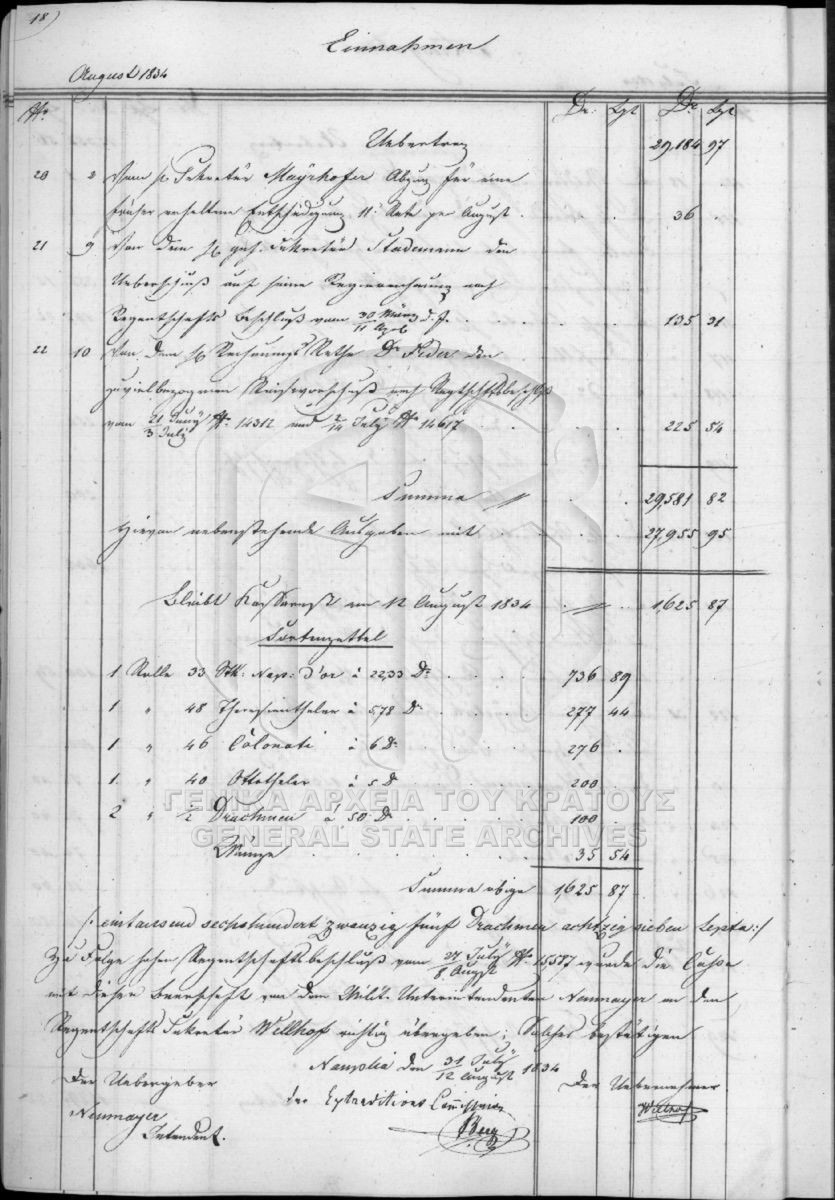 18)
Einnahmen
August 1834
Nr. Dr. Lpt Dr. Lpt
Uebertrag 29,184 97
20 2 Vom H. Sekretär Mayrhofer Abzug für eine
früher erhaltene Entschädigung 11. Rate per August . . . 36
21 9 Von dem H. geh. Sekretär Stademann den
Ueberschuß auf seine Regierechnung nach
Regentschafts Beschluß vom 30 März / 11 Apr d. J. . . . 135 31
22 10 Von dem H. Rechnungs Rathe Dr. Feder den
zuvielbezogenen Reisevorschuß nach Regtschftsbeschluß
vom 21 Juny / 3 July Nr. 14312 und 2 / 14 July Nr. 14617 . . . 225 54
Summa 29,581 82
Hievon nebenstehende Ausgaben mit . . . 27,955 95
Bleibt Kassarest am 12 August 1834 . . 1,625 87
Sortenzettel
1 Rolle 33 Stk: Nap: d'or à 22,33 Dr. . . . 736 89
1 " 48 Theresienthaler à 5,78 Dr. . . . 277 44
1 " 46 Colonati à 6 Dr. . . . 276 .
1 " 40 Ottothaler à 5 Dr. . . . 200
2 " 1/2 Drachmen à 50 Dr. . . . 100 .
Münze . . . 35 54
Summa obige 1,625 87
/: eintausend sechshundert zwanzig fünf Drachmen achtzig sieben Lepta :/
Zu Folge hohen Regentschaftsbeschluß vom 27 July / 8 Augst Nr. 15577 wurde die Cassa
mit dieser Baarschaft von dem Milit. Unterintendanten Neumayer an den
Regentschafts Sekretär Willhof richtig übergeben; Solches bestätigen
Nauplia den 31 July / 12 August 1834
Der Uebergeber
Der Uebernehmer
die Extraditions Commission
Neumayer
Intendant.
Willhof
ΓΕΝΙΚΑ ΑΡΧΕΙΑ ΤΟΥ ΚΡΑΤΟΥΣ
GENERAL STATE ARCHIVES